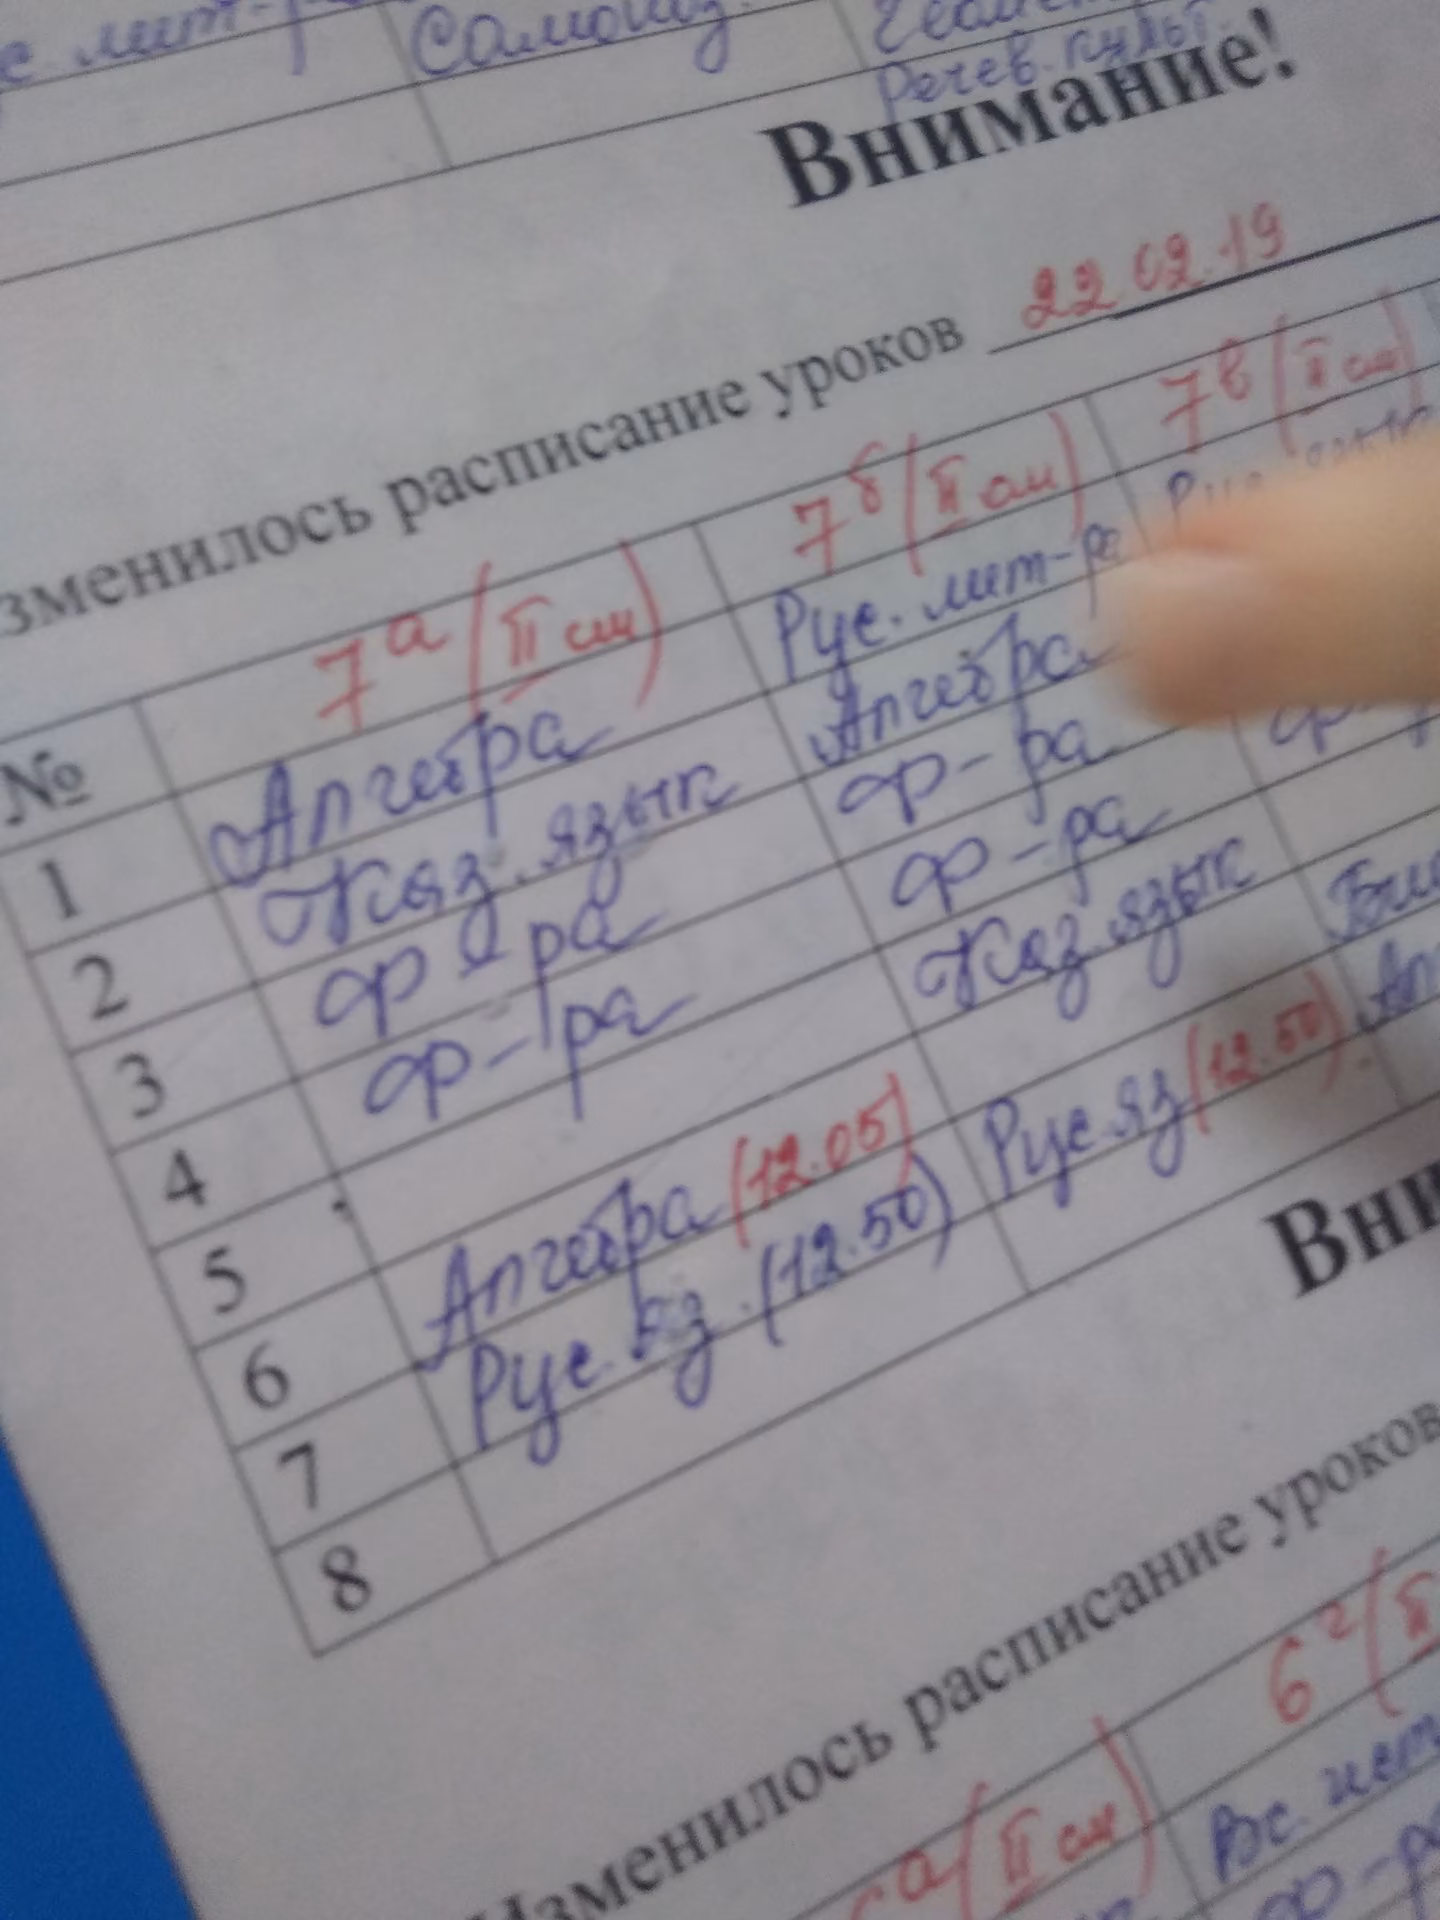 Самопоз.
Речев. культ.
Внимание!
расписание уроков 22.02.19
№ 7а (II см) 7б (II см) 7в (II см)
1 Алгебра Рус. лит-ра
2 Каз. язык Алгебра
3 Ф-ра Ф-ра
4 Ф-ра Ф-ра
5 Каз. язык
6 Алгебра (12.05) Рус. яз (12.50)
7 Рус. яз. (12.50)
8
Изменилось расписание уроков
а (II см) 6г (II
Вс. ист
Ф-ра